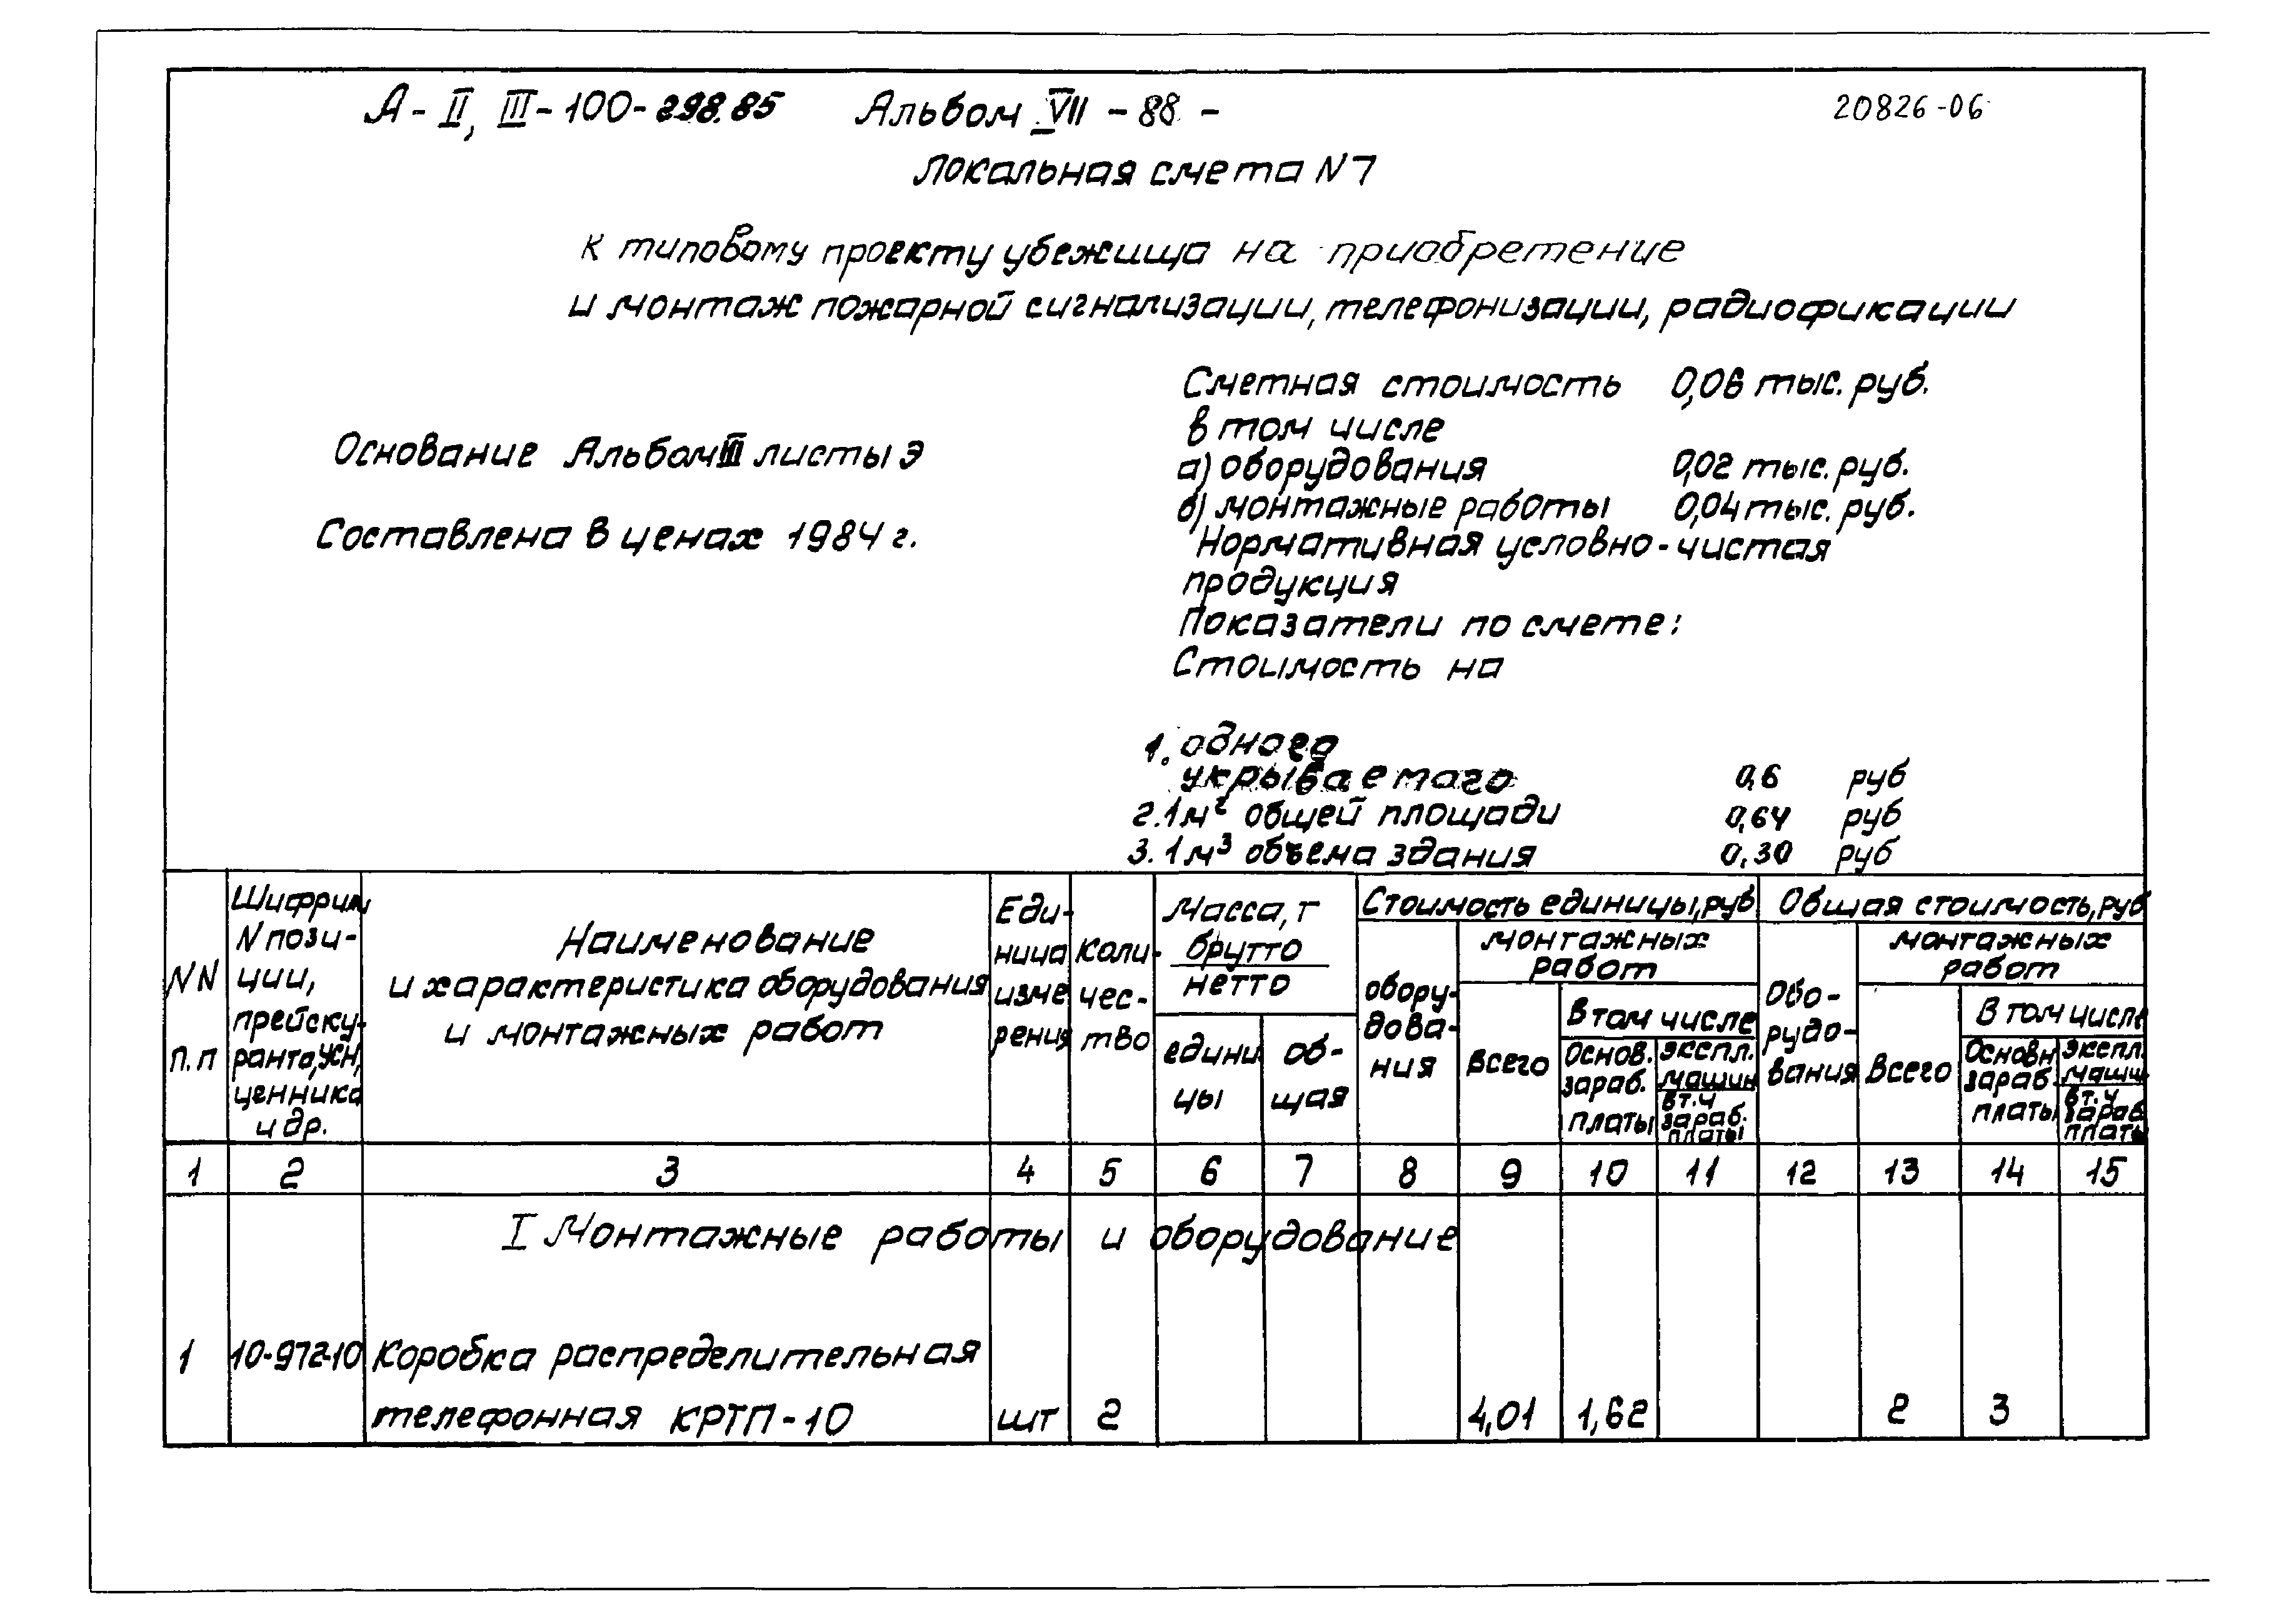 А-II, III-100-298.85 Альбом VII -88- 20826-06
Локальная смета N7
к типовому проекту убежища на приобретение
и монтаж пожарной сигнализации, телефонизации, радиофикации
Сметная стоимость 0,06 тыс. руб.
в том числе
Основание Альбом III листы Э
а) оборудования 0,02 тыс. руб.
б) монтажные работы 0,04 тыс. руб.
Составлена в ценах 1984 г.
Нормативная условно-чистая
продукция
Показатели по смете:
Стоимость на
1. одного
укрываемаго 0,6 руб
2. 1м² общей площади 0,64 руб
3. 1м³ объема здания 0,30 руб
NN п.п
Шифр и N пози-
ции,
прейску-
ранта, УСН,
ценника
и др.
Наименование
и характеристика оборудования
и монтажных работ
Еди-
ница
изме
рения
Коли-
чес-
тво
Масса, т
брутто
нетто
едини
цы
об-
щая
Стоимость единицы, руб
обору-
дова-
ния
монтажных
работ
всего
В том числе
основ.
зараб.
платы
экспл.
машин
в т.ч
зараб.
платы
Общая стоимость, руб
Обо-
рудо-
вания
монтажных
работ
всего
В том числе
Основн
зараб
платы
экспл.
машин
в т.ч
зараб
платы
1 2 3 4 5 6 7 8 9 10 11 12 13 14 15
I Монтажные работы и оборудование
1 10-972-10 Коробка распределительная
телефонная КРТП-10 шт 2 4,01 1,62 2 3